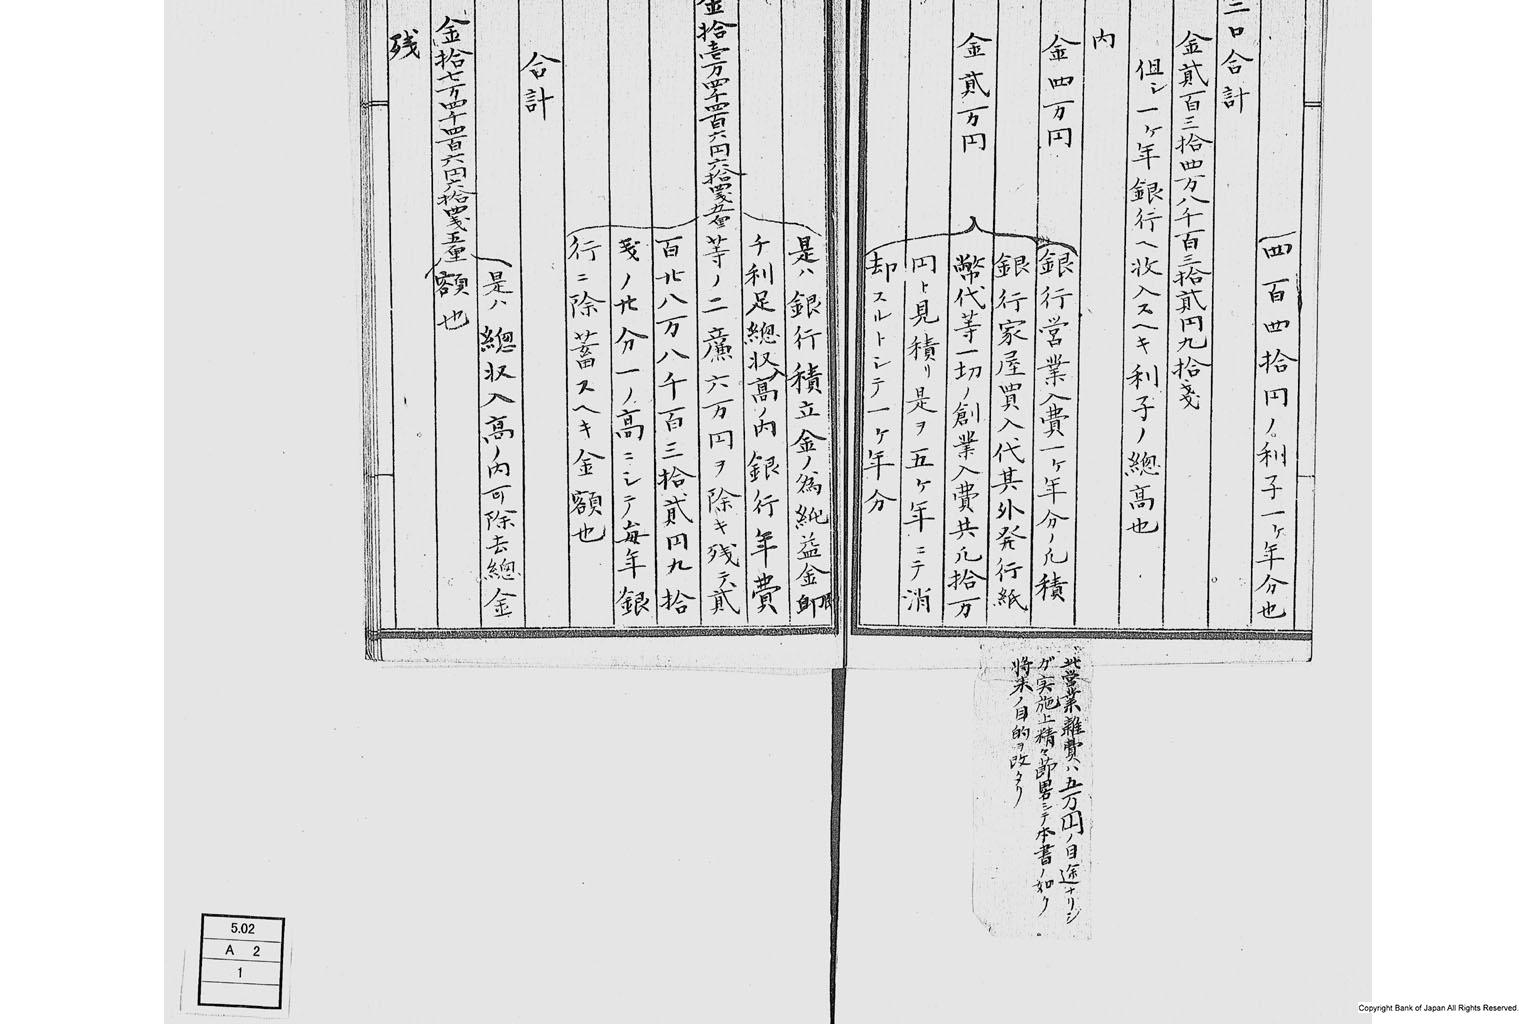 四百四拾円ノ利子一ヶ年分也
二口合計
金貳百三拾四万八千百三拾貳円九拾戔
但シ一ヶ年銀行ヘ收入スヘキ利子ノ總高也
内
金四万円
銀行営業入費一ヶ年分ノ凡積
金貳万円
銀行家屋買入代其外発行紙
幣代等一切ノ創業入費共凡拾万
円ト見積リ是ヲ五ヶ年ニテ消
却スルトシテ一ヶ年分
此営業雜費ハ五万円ノ目途ナリシ
ガ実施上精々節畧シテ本書ノ如ク
將来ノ目的ヲ改タリ
金拾壱万四千四百六円六拾四戔五厘
是ハ銀行積立金ノ為純益金即
チ利足總収入高ノ内銀行年費
等ノ二廉六万円ヲ除キ残テ貳
百廿八万八千百三拾貳円九拾
戔ノ廿分一ノ高ニシテ毎年銀
行ニ除蓄スヘキ金額也
合計
金拾七万四千四百六円六拾四戔五厘
是ハ總収入高ノ内可除去總金
額也
残
5.02
A 2
1
Copyright Bank of Japan All Rights Reserved.